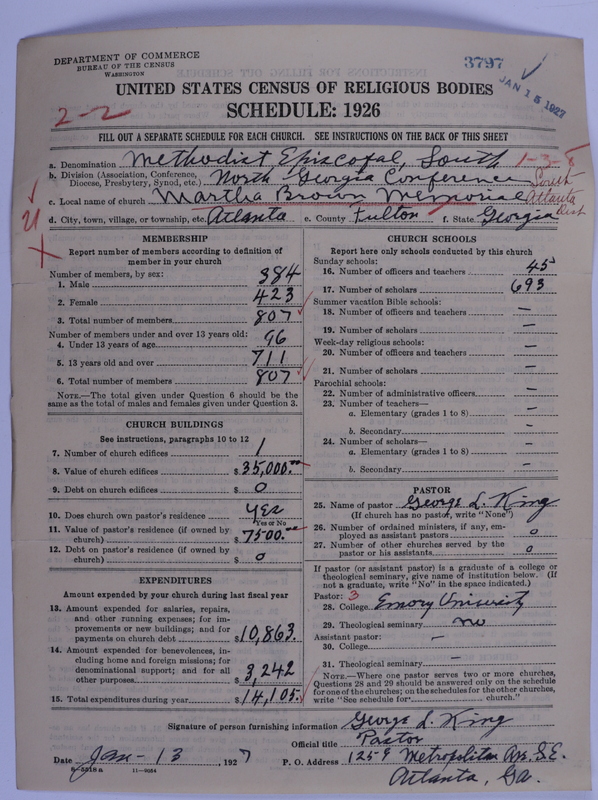 DEPARTMENT OF COMMERCE
BUREAU OF THE CENSUS
WASHINGTON
3797
JAN 15 1927
UNITED STATES CENSUS OF RELIGIOUS BODIES
2-2
SCHEDULE: 1926
FILL OUT A SEPARATE SCHEDULE FOR EACH CHURCH. SEE INSTRUCTIONS ON THE BACK OF THIS SHEET
a. Denomination Methodist Episcopal, South 1-3-8
b. Division (Association, Conference, Diocese, Presbytery, Synod, etc.) North Georgia Conference South
c. Local name of church Martha Brown Memorial Atlanta
d. City, town, village, or township, etc. Atlanta e. County Fulton f. State Georgia Dist
MEMBERSHIP
Report number of members according to definition of
member in your church
Number of members, by sex:
1. Male 384
2. Female 423
3. Total number of members 807
Number of members under and over 13 years old:
4. Under 13 years of age 96
5. 13 years old and over 711
6. Total number of members 807
NOTE.—The total given under Question 6 should be the
same as the total of males and females given under Question 3.
CHURCH BUILDINGS
See instructions, paragraphs 10 to 12
7. Number of church edifices 1
8. Value of church edifices $35,000.00
9. Debt on church edifices $0
10. Does church own pastor's residence yes
(Yes or No)
11. Value of pastor's residence (if owned by
church) $7500.00
12. Debt on pastor's residence (if owned by
church) $0
EXPENDITURES
Amount expended by your church during last fiscal year
13. Amount expended for salaries, repairs,
and other running expenses; for im-
provements or new buildings; and for
payments on church debt $10,863.
14. Amount expended for benevolences, in-
cluding home and foreign missions; for
denominational support; and for all
other purposes $3,242
15. Total expenditures during year $14,105.
CHURCH SCHOOLS
Report here only schools conducted by this church
Sunday schools:
16. Number of officers and teachers 45
17. Number of scholars 693
Summer vacation Bible schools:
18. Number of officers and teachers —
19. Number of scholars —
Week-day religious schools:
20. Number of officers and teachers —
21. Number of scholars —
Parochial schools:
22. Number of administrative officers —
23. Number of teachers—
a. Elementary (grades 1 to 8) —
b. Secondary —
24. Number of scholars—
a. Elementary (grades 1 to 8) —
b. Secondary —
PASTOR
25. Name of pastor George L. King
(If church has no pastor, write "None")
26. Number of ordained ministers, if any, em-
ployed as assistant pastors 0
27. Number of other churches served by the
pastor or his assistants 0
If pastor (or assistant pastor) is a graduate of a college or
theological seminary, give name of institution below. (If
not a graduate, write "No" in the space indicated.)
Pastor: 3
28. College Emory University
29. Theological seminary no
Assistant pastor:
30. College —
31. Theological seminary —
NOTE.—Where one pastor serves two or more churches,
Questions 28 and 29 should be answered only on the schedule
for one of the churches; on the schedules for the other churches,
write "See schedule for church."
Signature of person furnishing information George L. King
Official title Pastor
Date Jan-13, 1927 P. O. Address 1259 Metropolitan Ave. S.E.
8-5518a 11-9084 Atlanta, Ga.